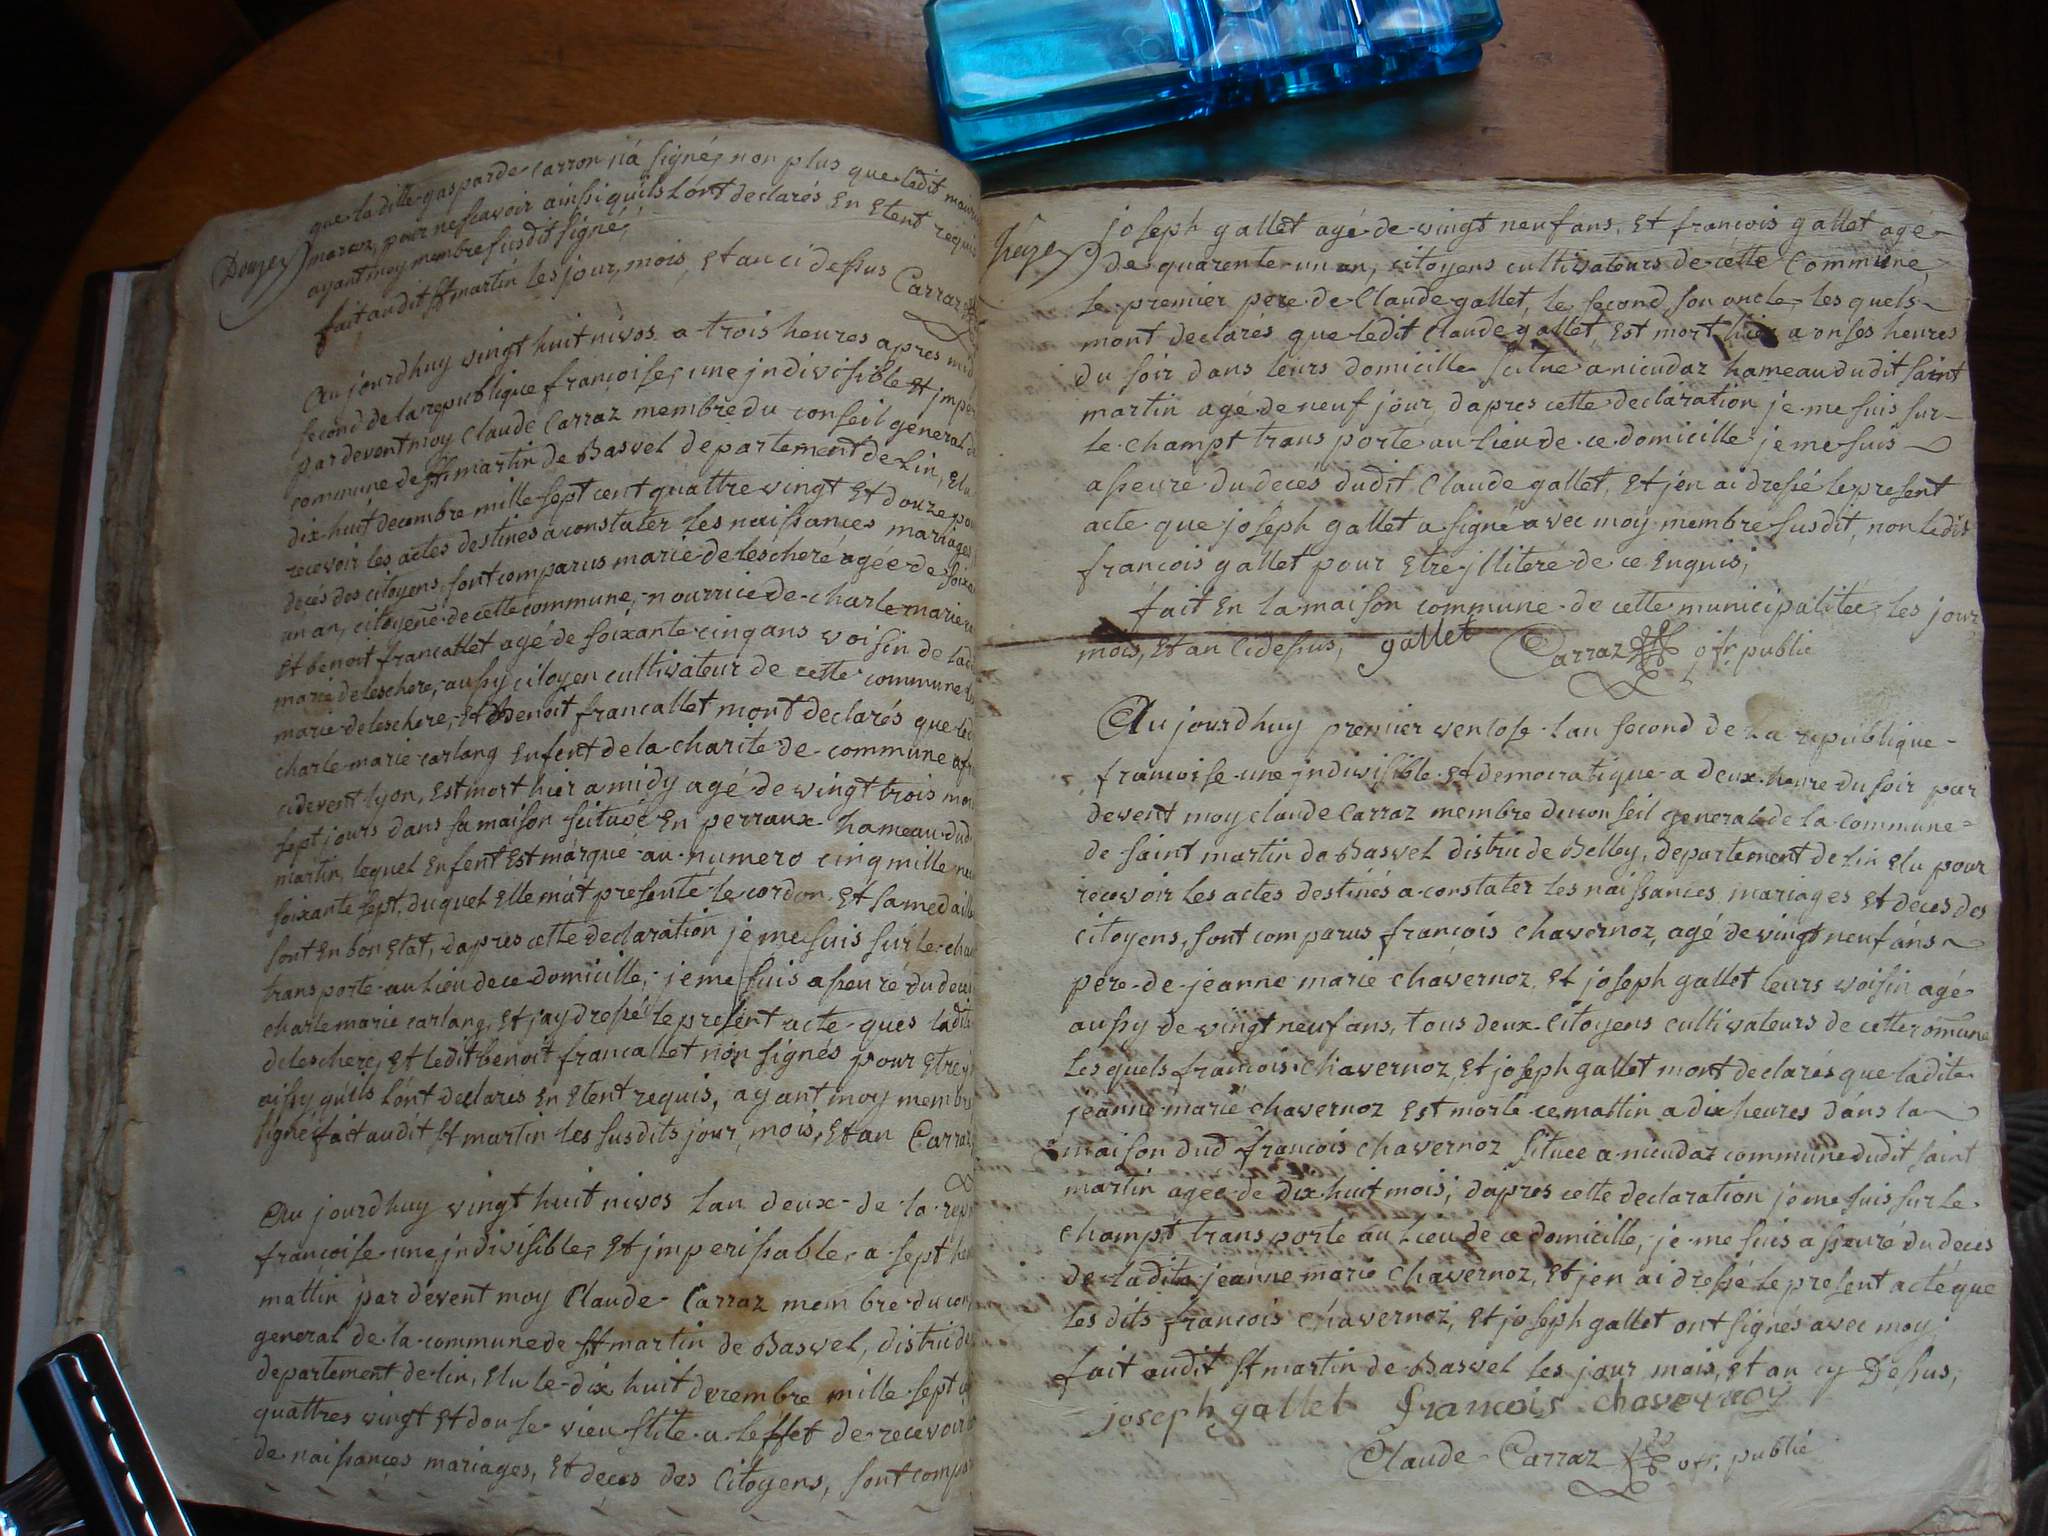 que ladille gasparde Carron n'a signé, non plus que ledit
Douze
marcoz, pour ne scavoir ainsi quils lont declarés En Etent requis
ayant moy membre susdit signé,
fait audit St martin les jour, mois, et an ci dessus Carraz
Aujourdhuy vingt huit nivos a trois heures apres midy
second de la republique francoise, une jndivisible Et jmper
par devent moy Claude Carraz membre du conseil general de
commune de St martin de Basvel departement de Lin, Elu
dix huit decembre mille sept cent quattre vingt Et douze po
recevoir les actes destines a constater les naissances mariages
décés des citoyens, sont comparus marie de leschere agée de soixa
un an, citoyene de cette commune, nourrice de charle marie
Et benoit francallet agé de soixante cinq ans voisin de lad
marie deleschere, aussy citoyen cultivateur de cette commune
marie deleschere, Et Benoit francallet mont declarés que led
charle marie carlang Enfent de la charite de commune afr
cidevent lyon, Est mort hier a midy agé de vingt trois moi
sept jours dans sa maison scituée En perraux hameau dud
martin, lequel Enfent Est marqué au numero cinq mille
soixante sept, duquel Elle mat presenté le cordon, Et sa medaille
sont En bon Etat, dapres cette declaration je me suis sur le cha
transporté au lieu de ce domicille, je me suis asseuré du deces
charle marie carlang, Et j'ay dressé le present acte ques ladite
deleschere, Et ledit benoit francallet non signés pour Etre j
aissy quils lont declares En Etent requis, ayant moy membre
signé fait audit St martin les susdits jour, mois, Et an Carraz
Aujourdhuy vingt huit nivos lan deux de la rep
francoise une jndivisible, Et jmperissable, a sept he
mattin par devent moy Claude Carraz membre du con
general de la commune de St martin de Basvel, distri de
departement de lin, Elu le dix huit decembre mille sept c
quattres vingt Et douse vieu stile a leffet de recevoir
de naissances mariages, Et deces des Citoyens, sont compa
treize
joseph gallet agé de vingt neuf ans, Et francois gallet agé
De quarente un an, citoyens cultivateurs de cette Commune
le premier pere de Claude gallet, le second son oncle, les quels
mont declarés que ledit Claude gallet, Est mort hier a onses heures
du soir dans leurs domicille scitue a nicudaz hameau dudit saint
martin agé de neuf jour, dapres cette declaration je me suis sur
le champt transporté au lieu de ce domicille je me suis
asseure du decés dudit Claude gallet, Et jen ai dressé le present
acte que joseph gallet a signé avec moy membre susdit, non ledit
francois gallet pour Etre jlliteré de ce Enquis;
fait En la maison commune de cette municipalitée les jour
mois, Et an Cidessus, gallet Carraz ofr. public
Aujourdhuy premier ventose lan second de la republique
francoise une jndivisible Et democratique a deux heure du soir par
devent moy claude Carraz membre du conseil general de la commune
de saint martin de Basvel distri de Belley, departement de Lin Elu pour
recevoir les actes destinés a constater les naissances mariages Et deces des
citoyens, sont comparus francois chavernoz, agé de vingt neuf ans
pere de jeanne marie chavernoz, Et joseph gallet leurs voisin agé
aussy de vingt neuf ans, tous deux Citoyens cultivateurs de cette comune
Les quels francois Chavernoz, Et joseph gallet mont declarés que ladite
jeanne marie chavernoz Est morte ce mattin a dix heures dans la
maison dud francois chavernoz situee a nicudaz commune dudit saint
martin agee de dix huit mois; dapres cette declaration je me suis sur le
champt transporte au Lieu de ce domicille, je me suis asseuré du deces
de ladite jeanne marie Chavernoz, Et jen ai dressé le present acte que
les dits francois Chavernoz, Et joseph gallet ont signés avec moy,
fait audit St martin de Basvel les jour mois, Et an cy Dessus,
joseph gallet francois chavernoy
Claude Carraz ofr. public